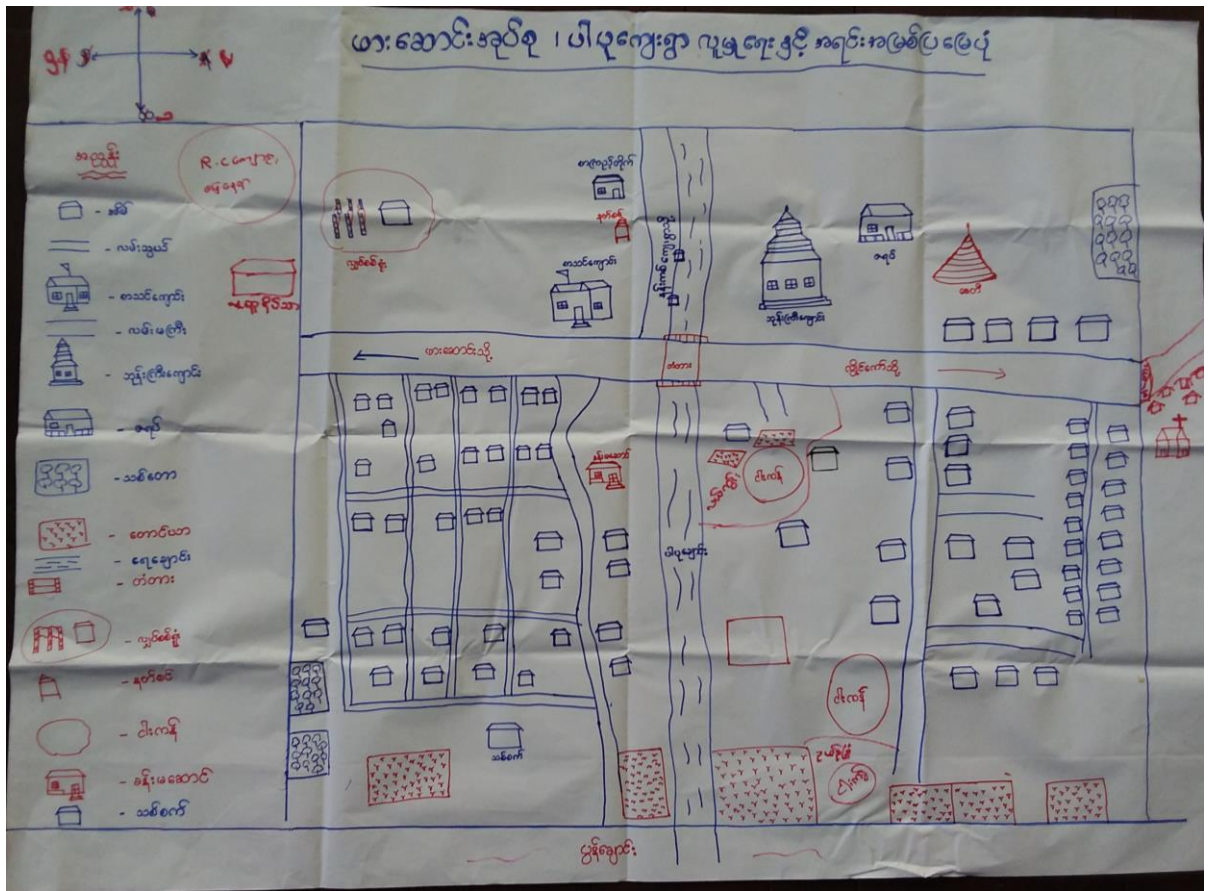 ဖားဆောင်းအုပ်စု ၊ ပါပူကျေးရွာ လူမှုရေးနှင့် အရင်းအမြစ်ပြမြေပုံ
အညွှန်း
- အိမ်
- လမ်းသွယ်
- စာသင်ကျောင်း
- လမ်းမကြီး
- ဘုန်းကြီးကျောင်း
- ဇရပ်
- သစ်တော
- တောင်ယာ
- ရေချောင်း
- တံတား
- လျှပ်စစ်ရုံး
- နတ်စင်
- ငါးကန်
- ခန်းမဆောင်
- သစ်စက်
R.C
လျှပ်စစ်ရုံး
စာကြည့်တိုက်
နတ်စင်
စာသင်ကျောင်း
ဘုန်းကြီးကျောင်း
ဇရပ်
စေတီ
ဖားဆောင်းသို့
တံတား
လွိုင်ကော်သို့
ခန်းမဆောင်
ငါးကန်
ပါပူချောင်း
ငါးကန်
သစ်စက်
ပွန်ချောင်း